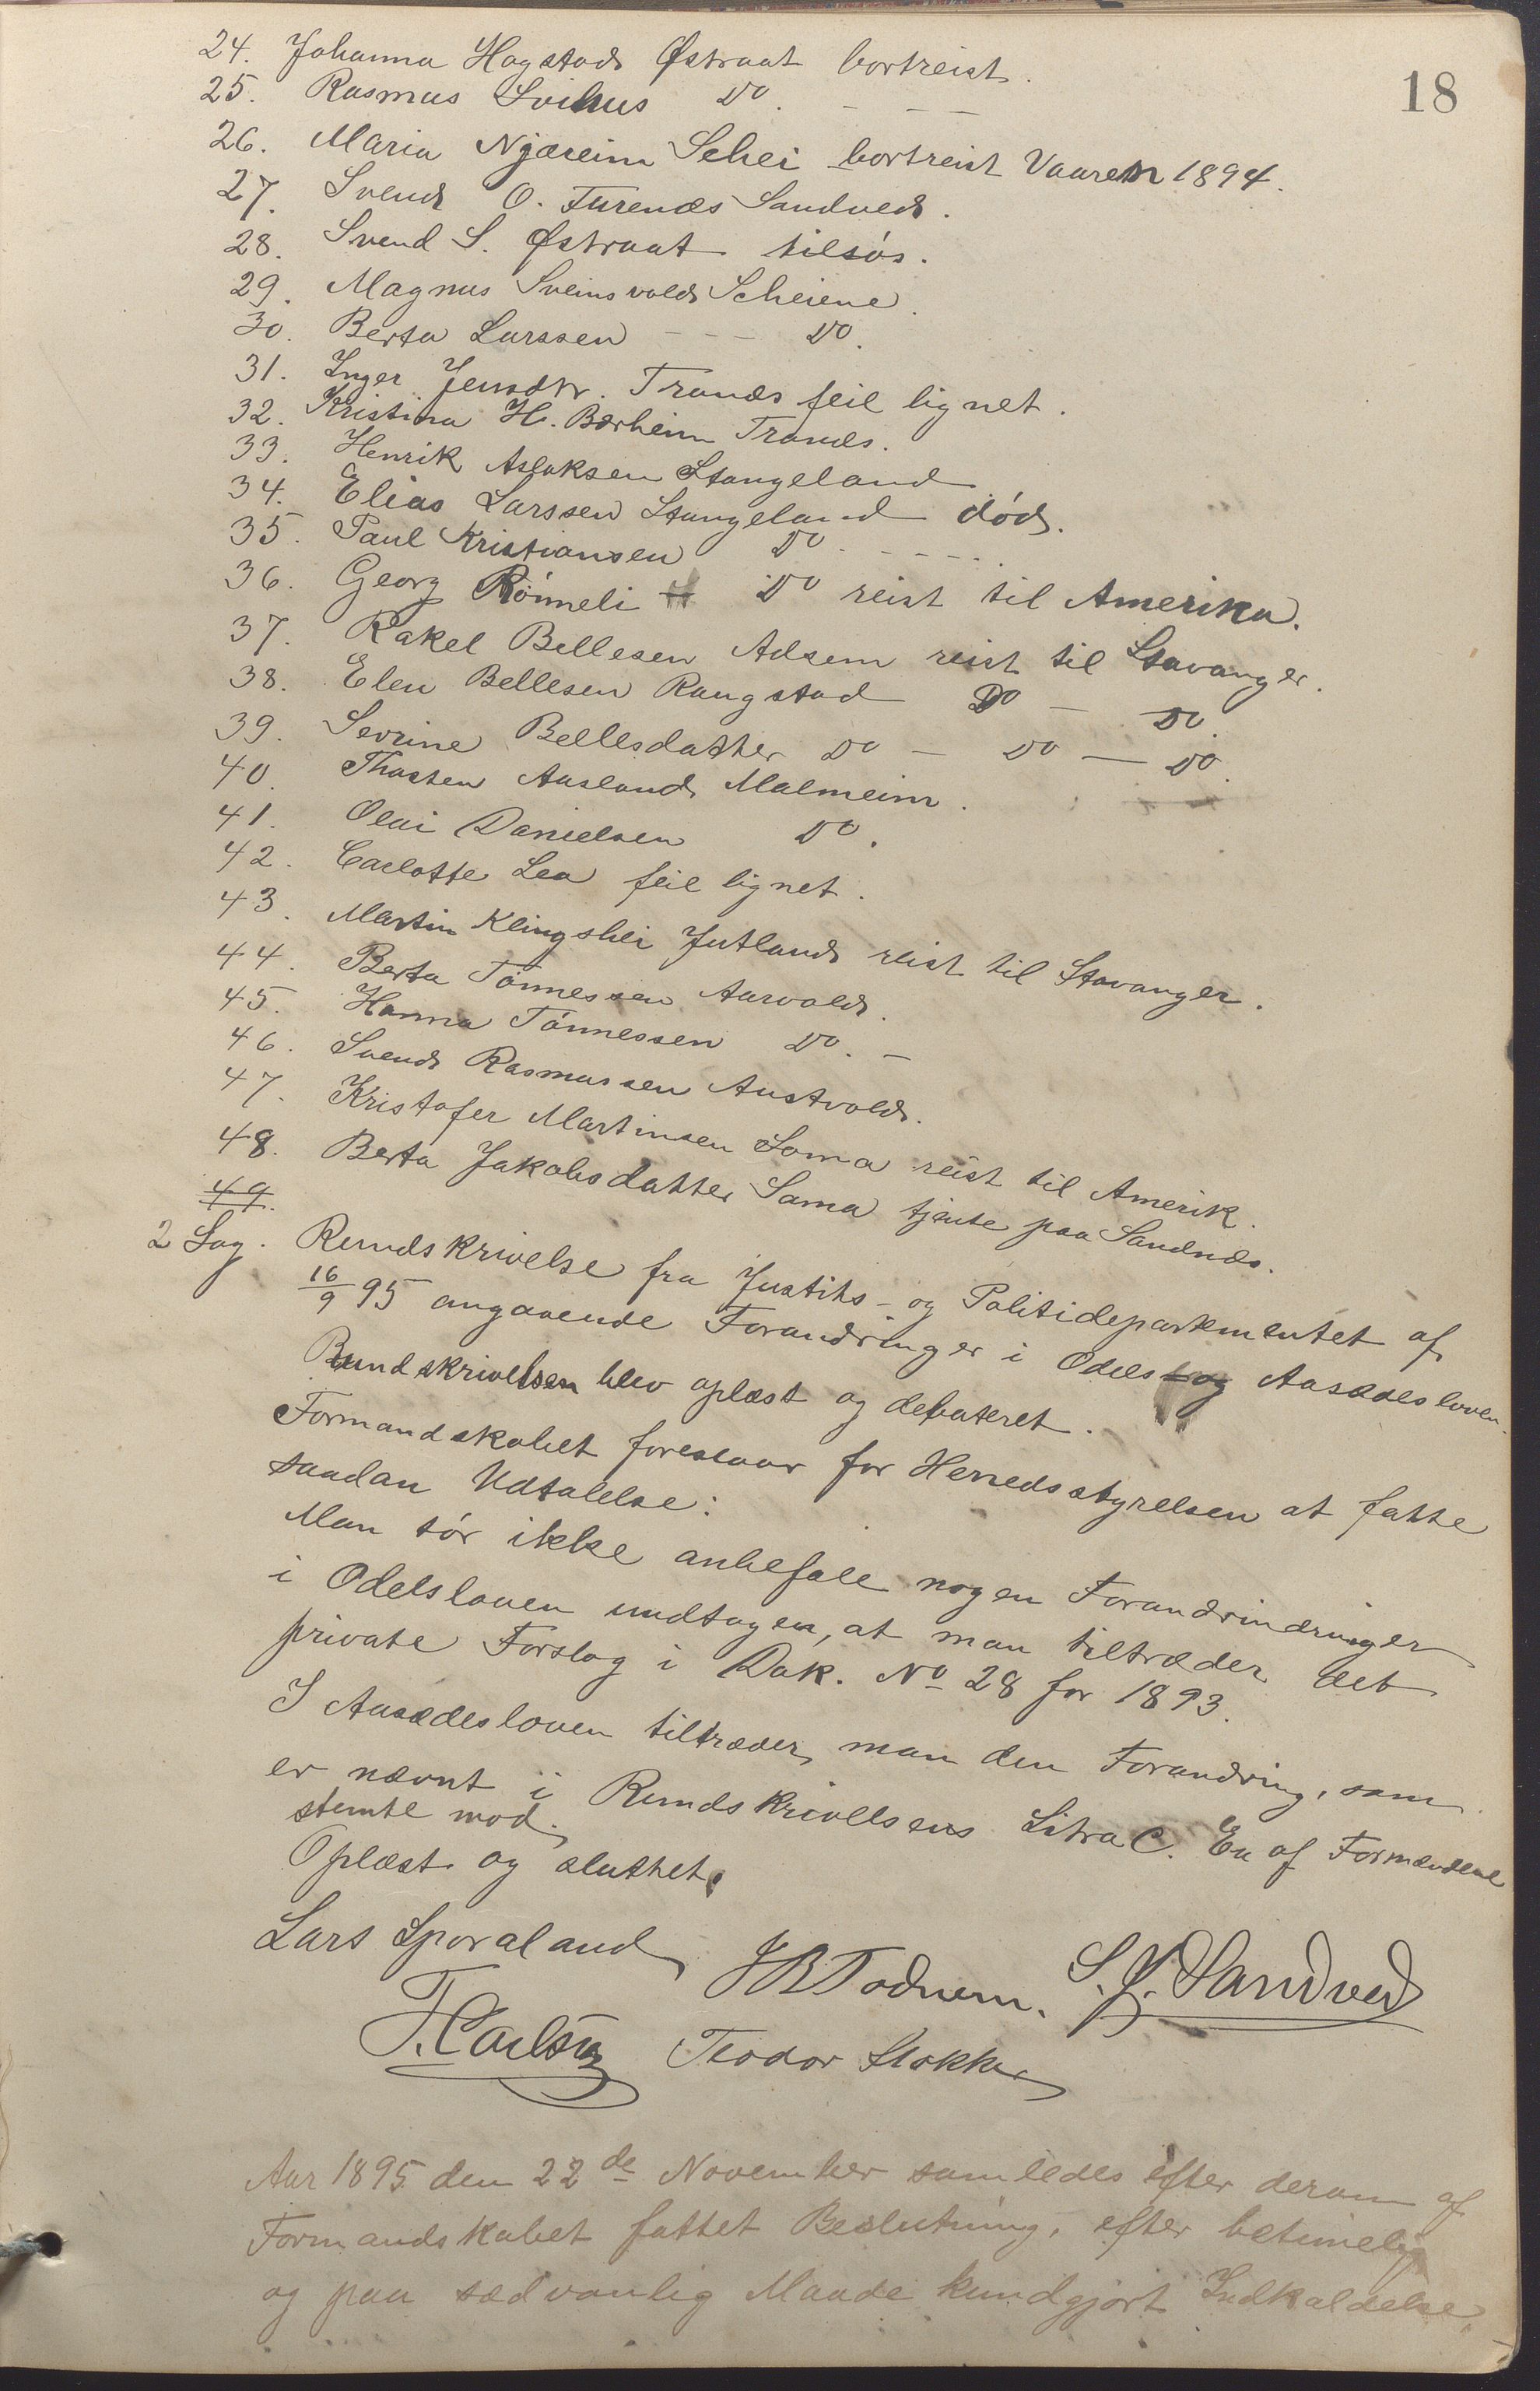 18
24. Johanna Hogstad Østraat bortreist.
25. Rasmus Svihus Do. - -
26. Maria Njæreim Schei bortreist Vaaren 1894.
27. Svend O. Furenæs Sandved.
28. Svend S. Østraat tilsøs.
29. Magnus Sveinsvold Scheiene.
30. Berta Larssen - - Do.
31. Inger Jensdtr. Tranes feil lignet.
32. Kristina H. Bærheim Tranes.
33. Henrik Aslaksen Stangeland
34. Elias Larssen Stangeland død.
35. Paul Kristiansen Do. - - - -
36. Georg Rømneli Do reist til Amerika.
37. Rakel Bellesen Adsem reist til Stavanger.
38. Elen Bellesen Raugstad Do - Do.
39. Sevrine Bellesdatter Do - Do - Do.
40. Thosten Aasland Malmeim.
41. Olai Danielsen Do.
42. Carlotte Lea feil lignet.
43. Martin Klingshei Jutland reist til Stavanger.
44. Berta Tønnessen Aarvold.
45. Hanna Tønnessen Do. -
46. Svend Rasmussen Austvold.
47. Kristofer Martinsen Soma reist til Amerik.
48. Berta Jakobsdatter Soma tjente paa Sandnæs.
49.
2 Sag. Rundskrivelse fra Justits- og Politidepartementet af
16/9 95 angaaende Forandringer i Odels og Aasædesloven.
Rundskrivelsen blev oplæst og debateret.
Formandskabet foreslaar for Herredsstyrelsen at fatte
saadan Udtalelse:
Man tør ikke anbefale nogen Forandrindringer
i Odelsloven undtagen, at man tiltræder det
private Forslag i Dok. No 28 for 1893.
I Aasædesloven tiltræder man den Forandring, som
er nævnt i Rundskrivelsens Litra C. En af Formændene
stemte mod.
Oplæst og sluttet.
Lars Sporaland J B Todnem. S. J. Sandved
T. Carlsen Teodor Stokke
Aar 1895 den 22de November samledes efter derom af
Formandskabet fattet Beslutning, efter betimelig
og paa sædvanlig Maade kundgjort Indkaldelse,